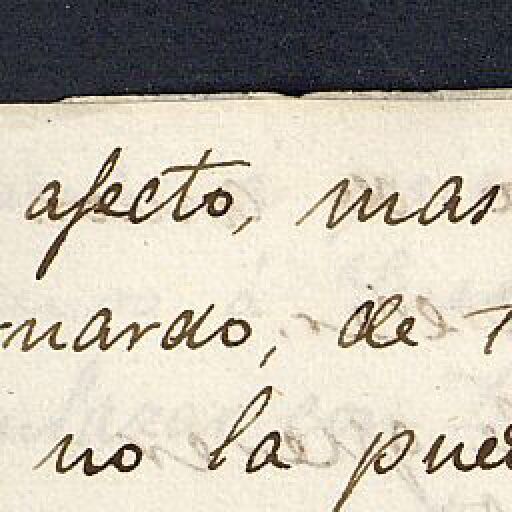 afecto, mas
nardo, de
no la pue